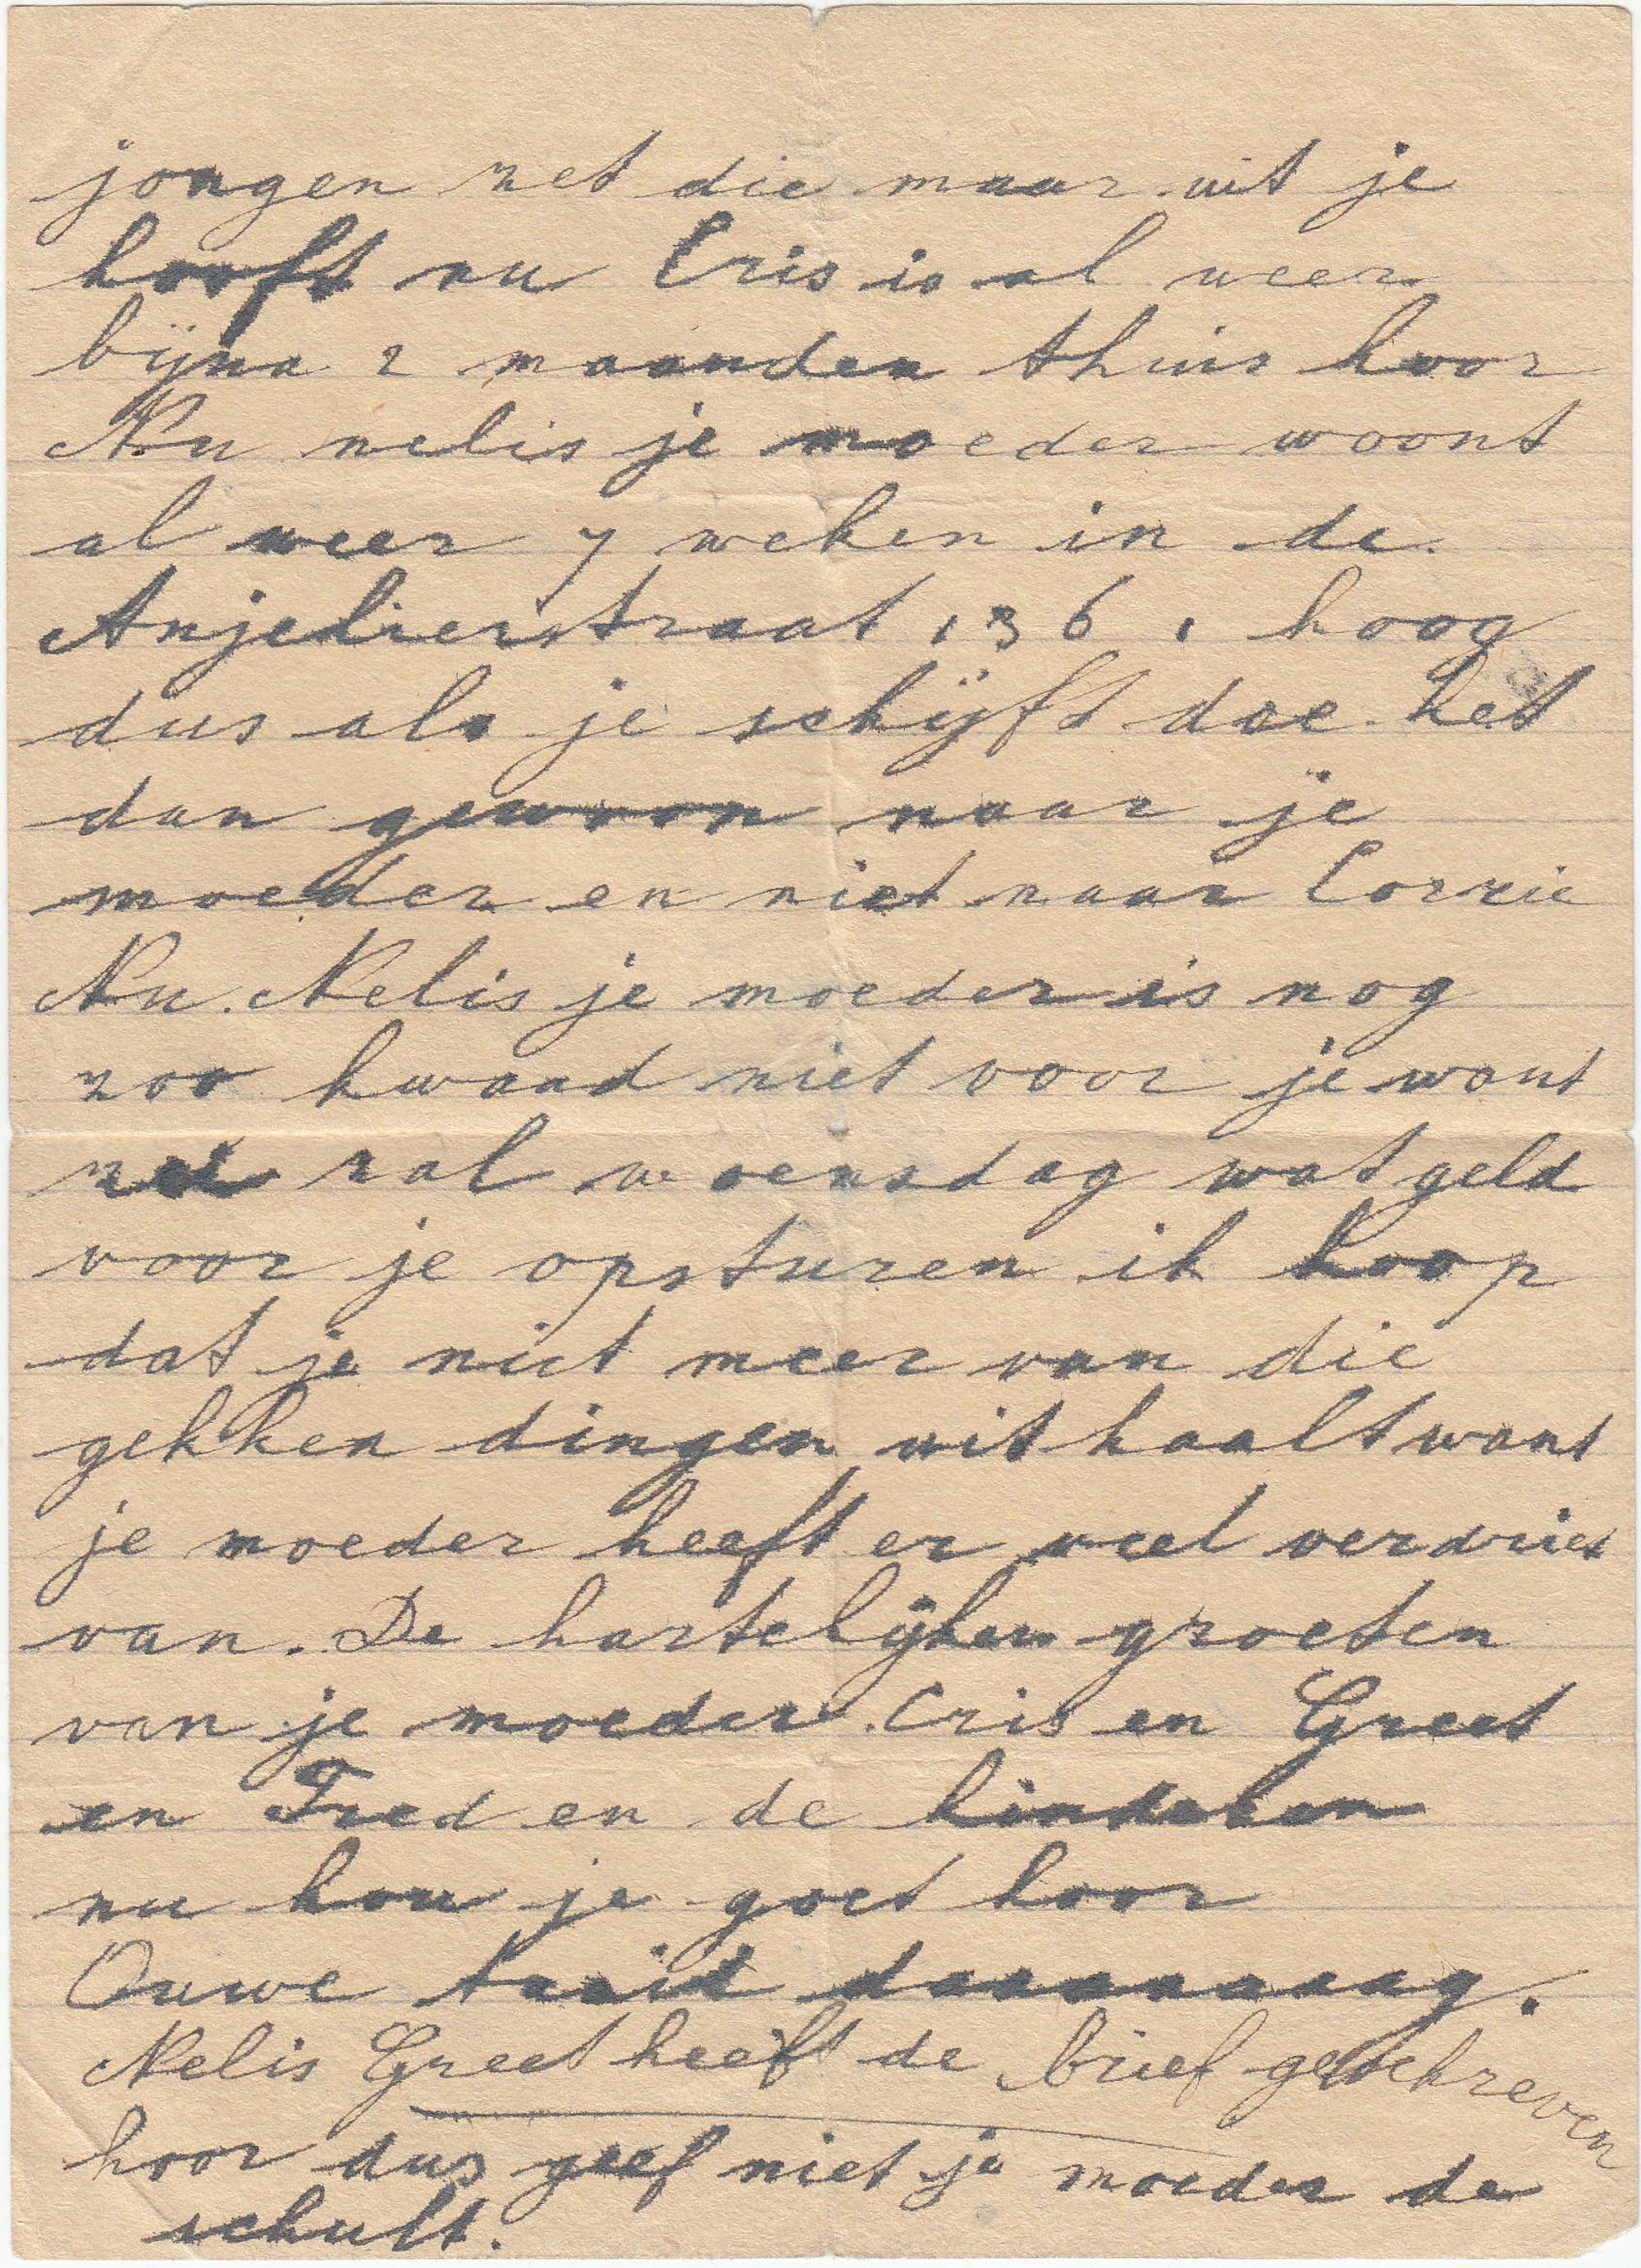 jongen zet die maar uit je
hooft nu Cris is al weer
bijna 2 maanden thuis hoor
Nu nelis je moeder woont
al weer 7 weken in de.
Anjelierstraat 136 1 hoog
dus als je schijft doe het
dan gewoon naar je
moeder en niet naar Corrie
Nu. Nelis je moeder is nog
zoo kwaad niet voor je want
ze zal woensdag wat geld
voor je opsturen ik hoop
dat je niet meer van die
gekken dingen uithaalt want
je moeder heeft er veel verdriet
van. De hartelijken groeten
van je moeder. Cris en Greet
en Fred en de
nu hou je goet hoor
Ouwe daaaaaag.
Nelis Greet heeft de brief geschreven
hoor dus geef niet je moeder de
schult.